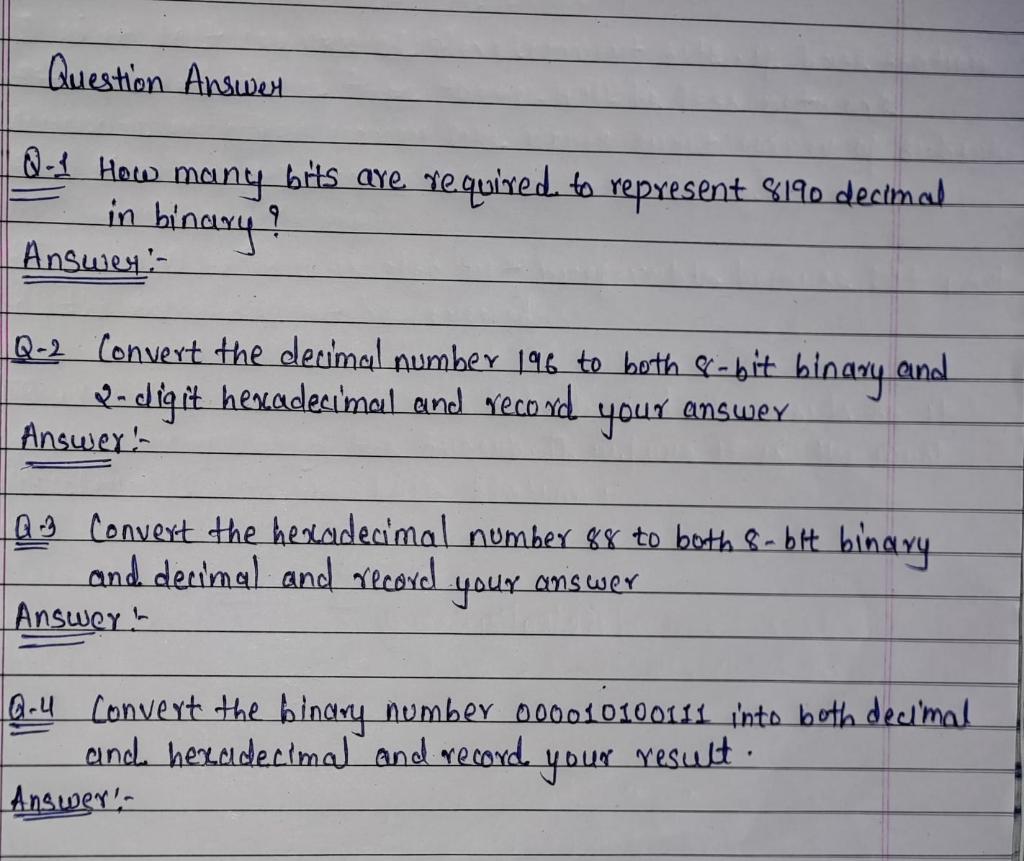 Question Answer
Q-1 How many bits are required to represent 8190 decimal
in binary ?
Answer:-
Q-2 Convert the decimal number 196 to both 8-bit binary and
2-digit hexadecimal and record your answer
Answer:-
Q-3 Convert the hexadecimal number 88 to both 8-bit binary
and decimal and record your answer
Answer:-
Q-4 Convert the binary number 000010100111 into both decimal
and hexadecimal and record your result.
Answer:-